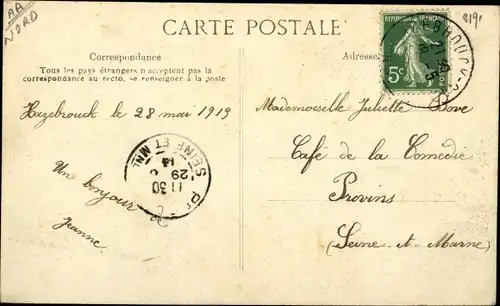 AA
NORD
CARTE POSTALE
Correspondance
Tous les pays étrangers n'acceptent pas la
correspondance au recto, se renseigner à la poste
Adresse
RÉPUBLIQUE FRANÇAISE
5c
Hazebrouck le 28 mai 1919
Un bonjour
Jeanne
SEINE ET
11 30
29
Mademoiselle Juliette
Café de la Comédie
Provins
(Seine et Marne)